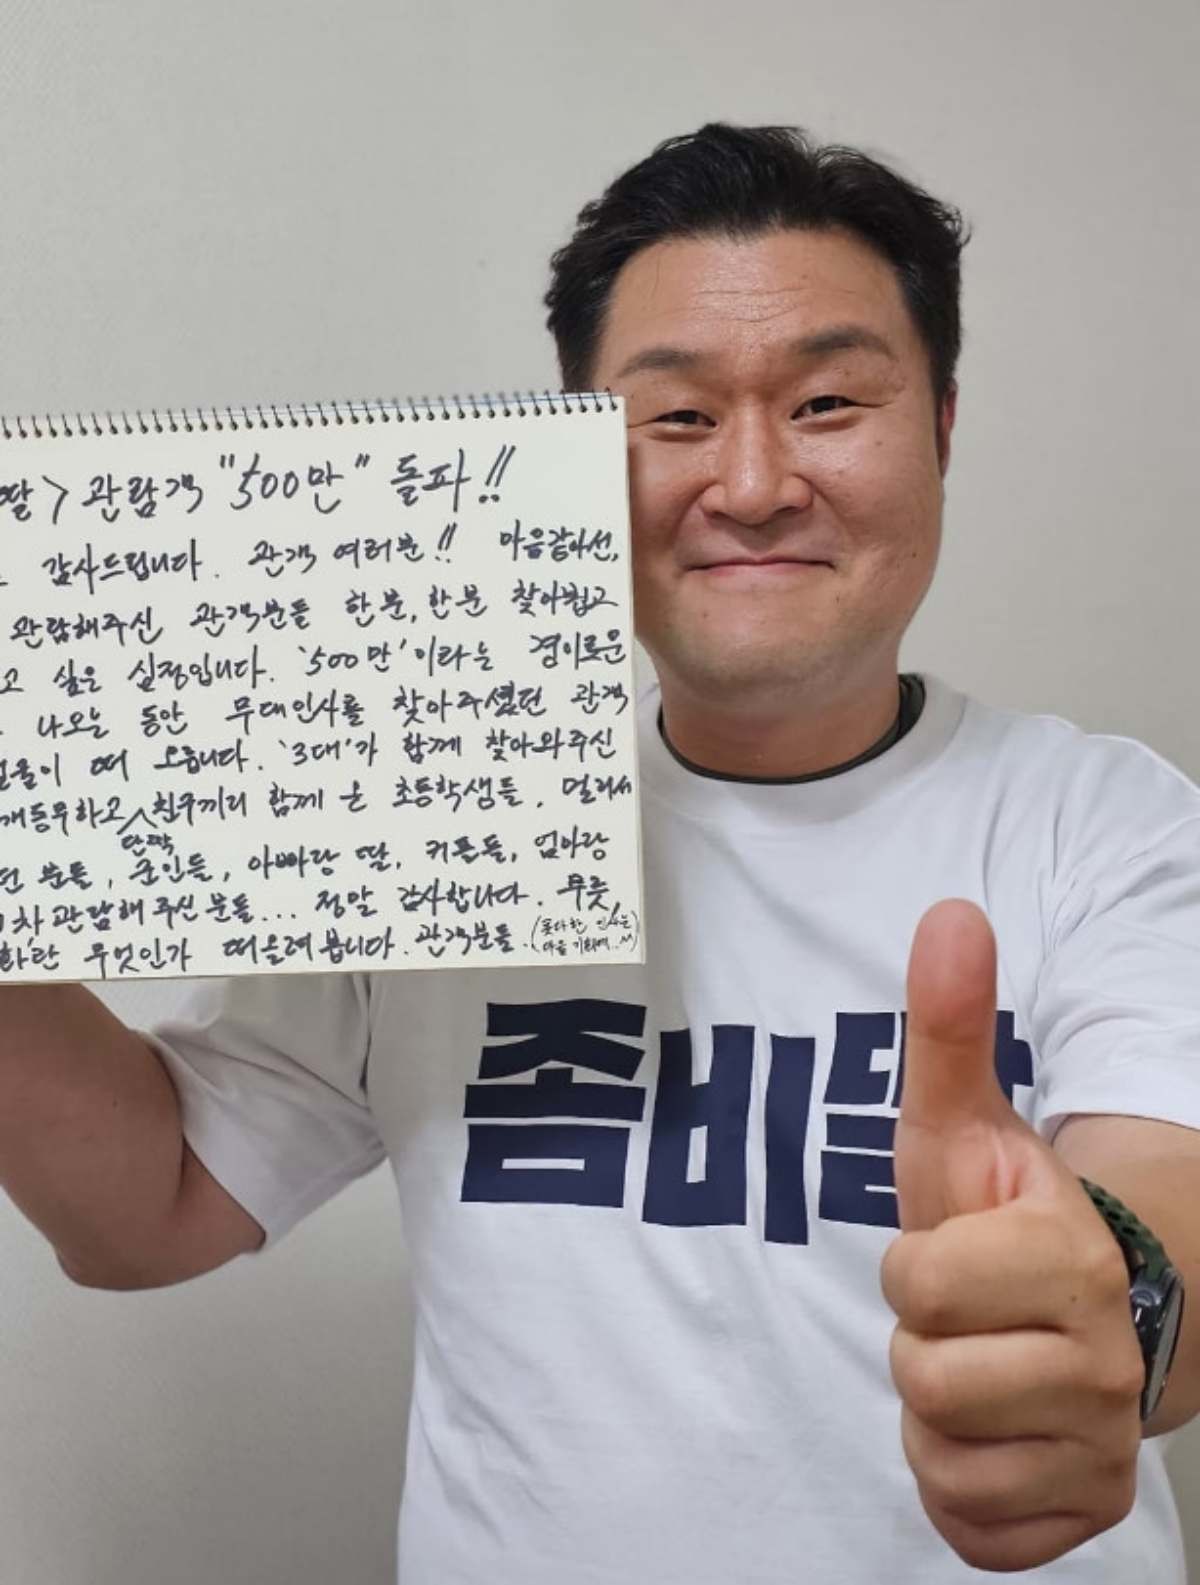 딸> 관람객 "500만" 돌파!!
감사드립니다. 관객 여러분!! 마음같아선,
관람해주신 관객분들 한분, 한분 찾아뵙고
고 싶은 심정입니다. '500만'이라는 경이로운
나오는 동안 무대인사를 찾아주셨던 관객
얼굴이 떠 오릅니다. '3대'가 함께 찾아와주신
깨동무하고 친구끼리 함께 온 초등학생들, 멀리서
단짝
던 분들, 군인들, 아빠랑 딸, 커플들, 엄마랑
차 관람해 주신 분들... 정말 감사합니다. 무릇,
화'란 무엇인가 떠올려 봅니다. 관객분들. (못다한 인사는
다음 기회에.. ^^)
좀비딸